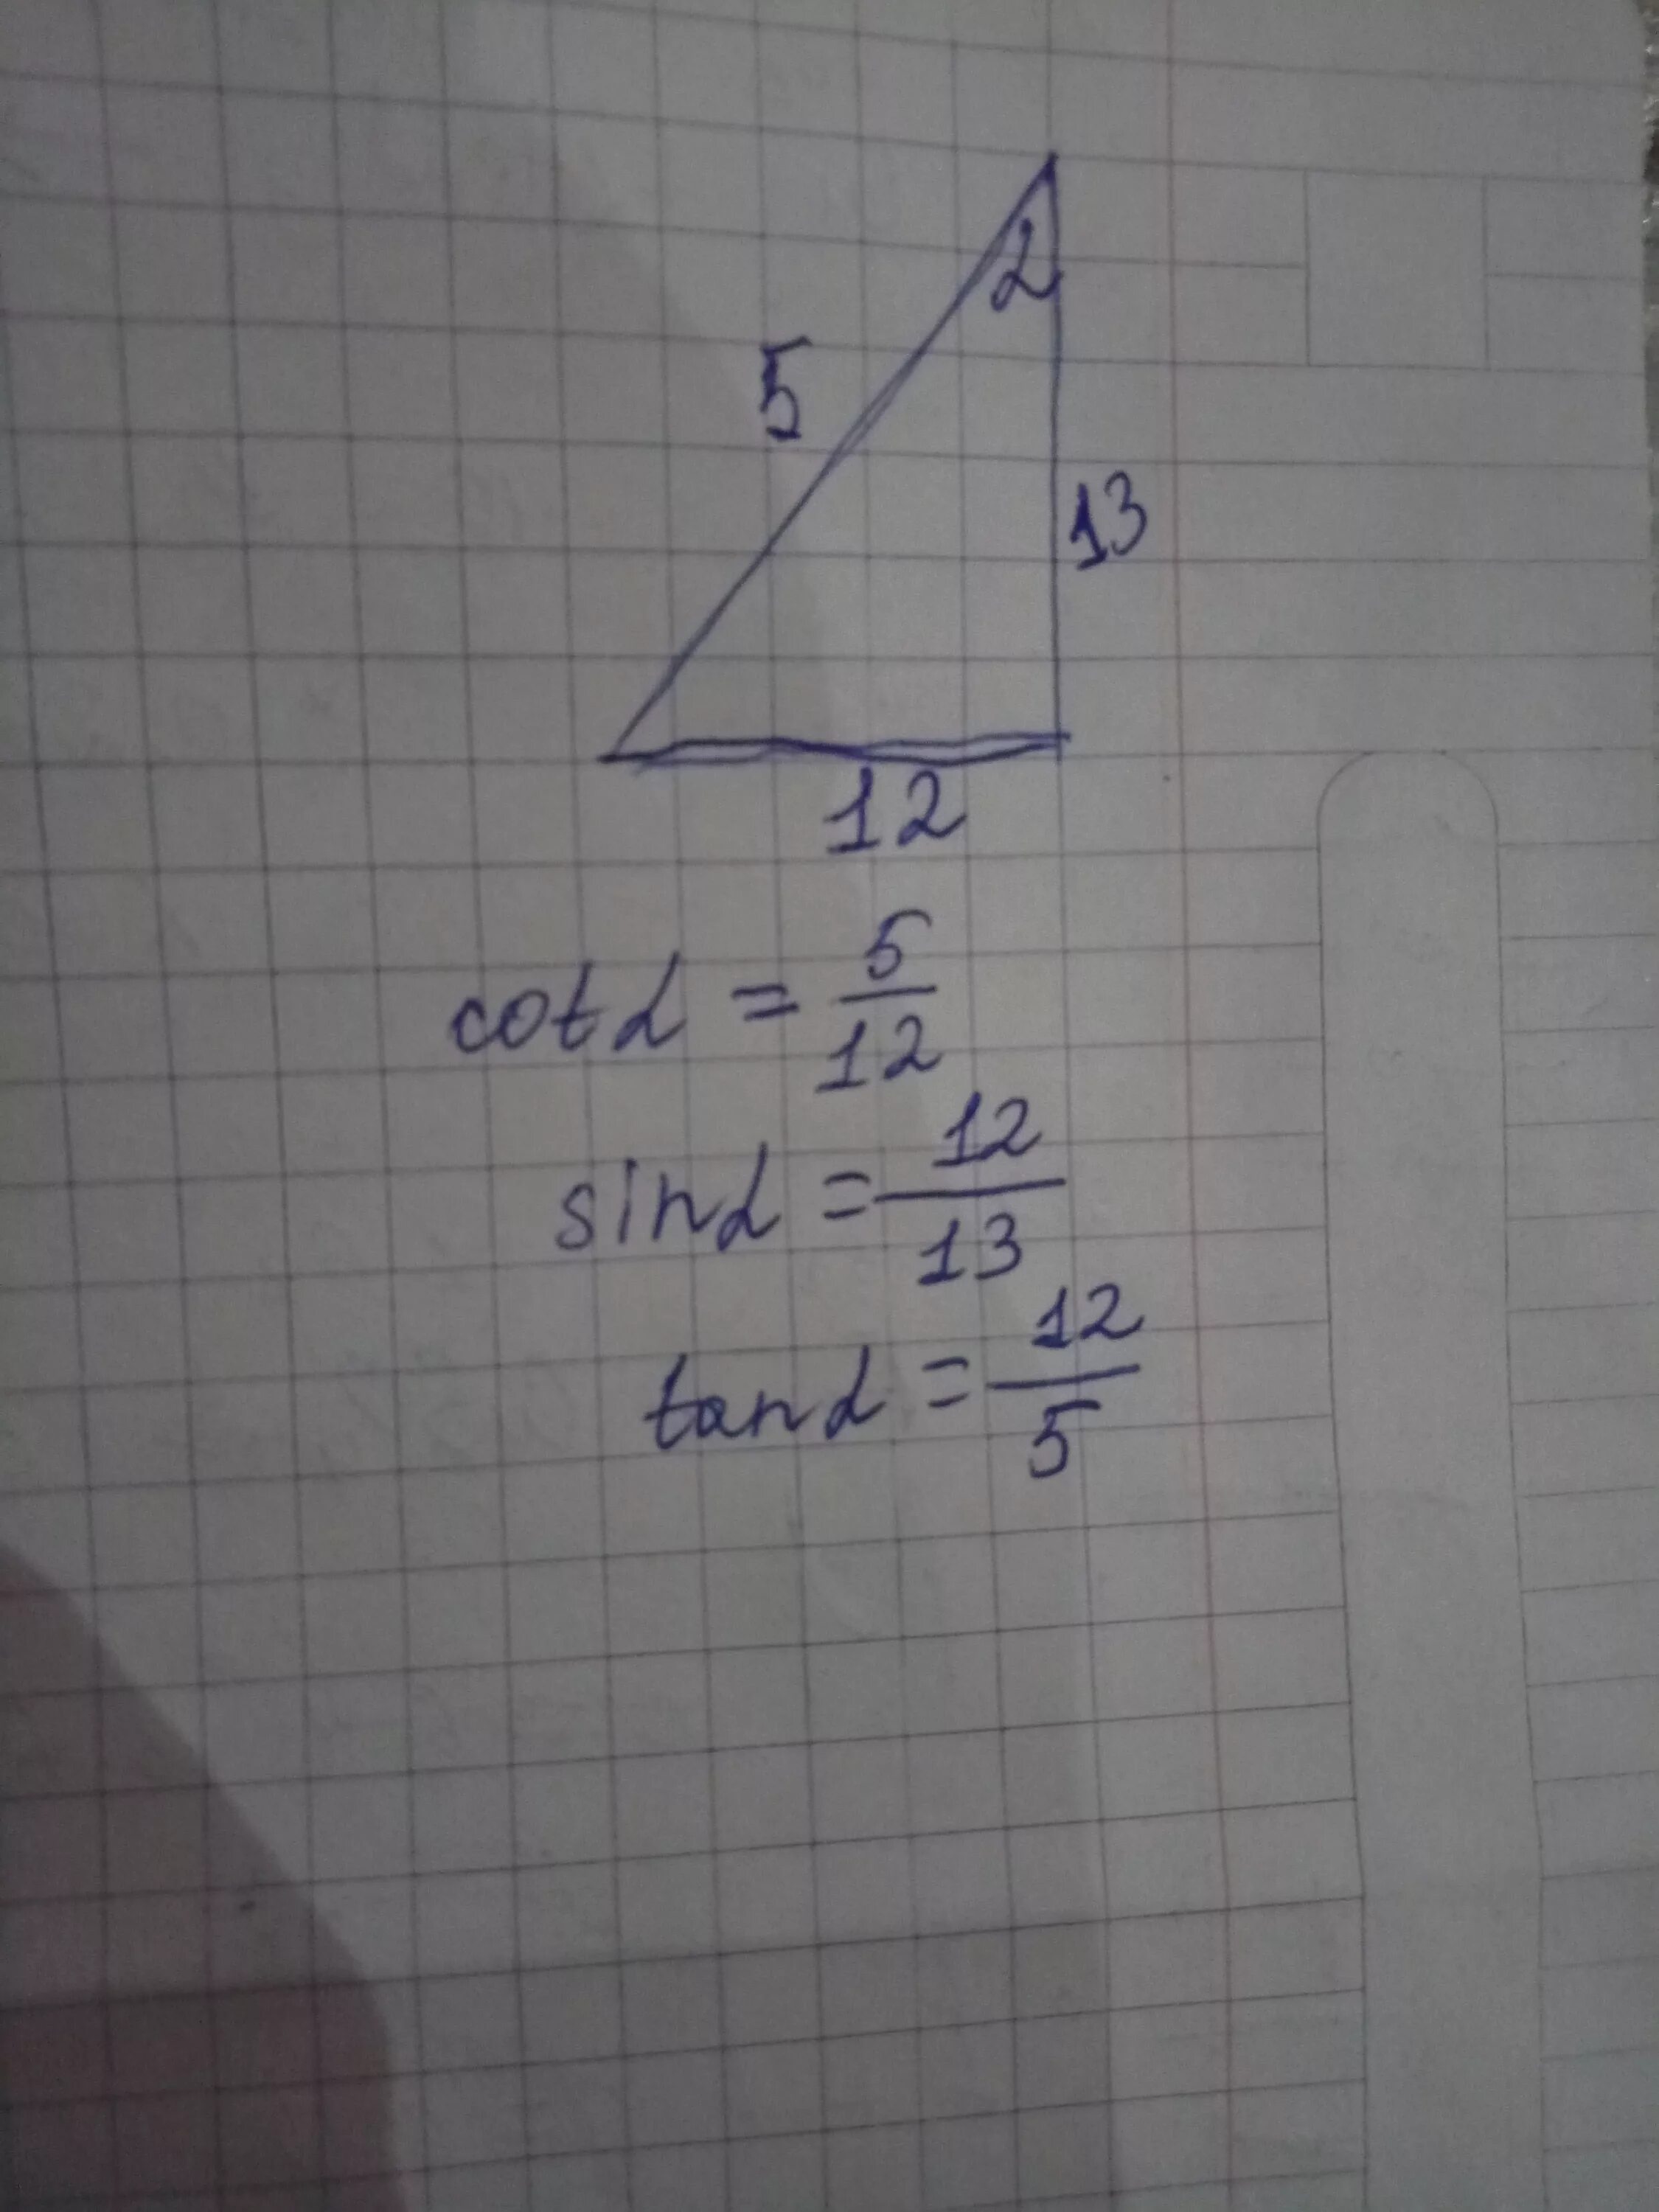 α
5
13
12
cot α = 5/12
sin α = 12/13
tan α = 12/5